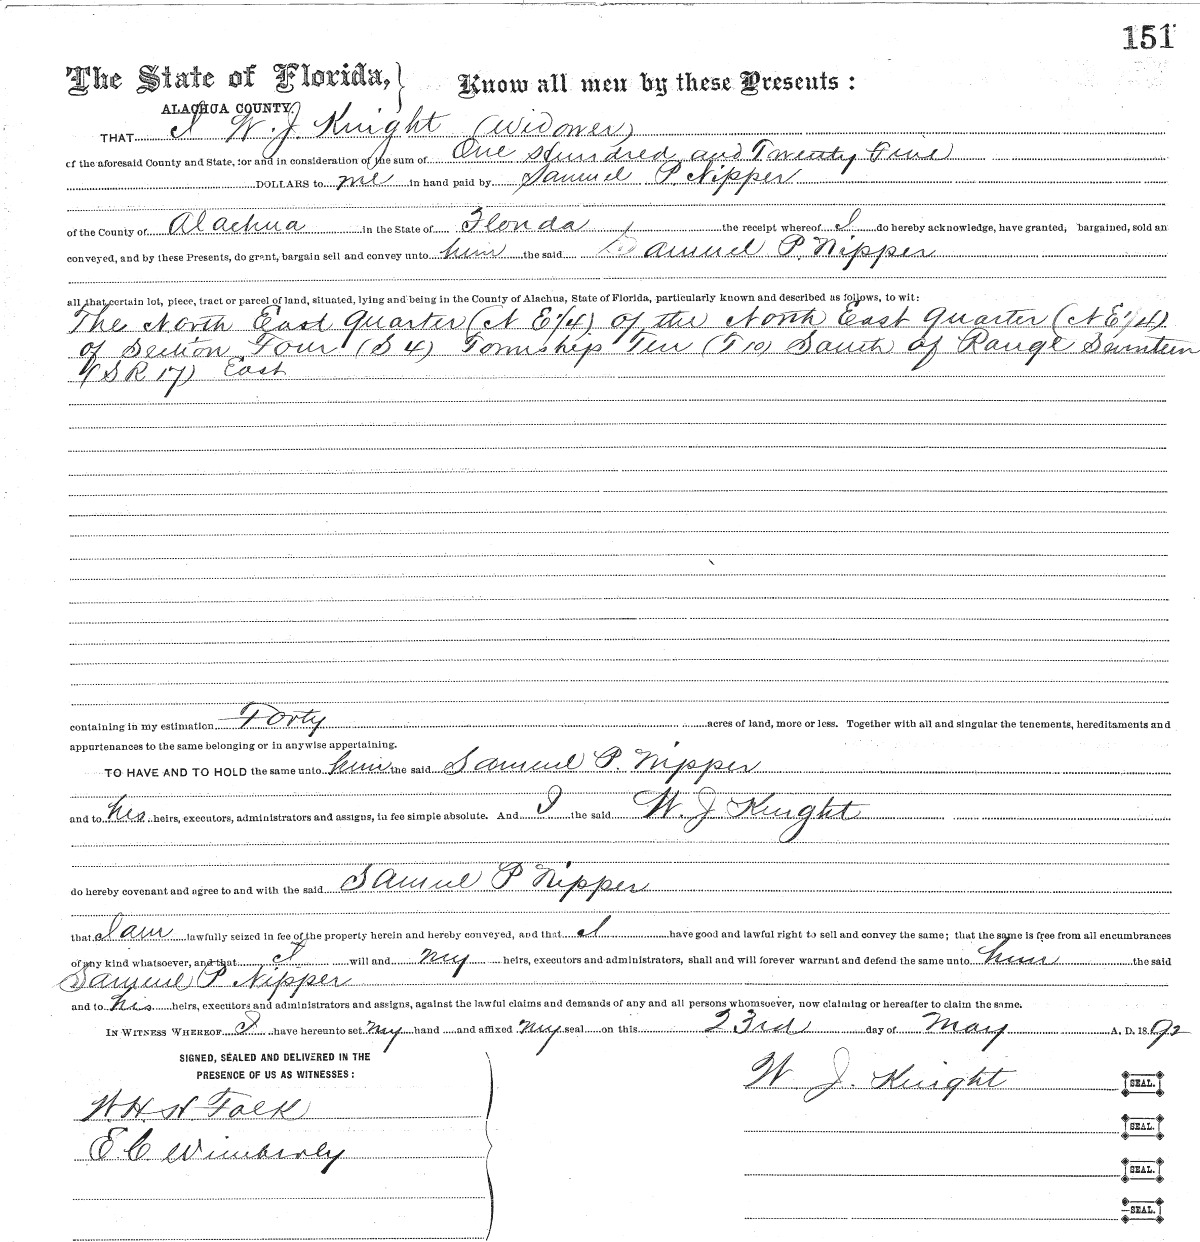 151
The State of Florida, } Know all men by these Presents :
ALACHUA COUNTY.
THAT I W. J. Knight (Widower)
of the aforesaid County and State, for and in consideration of the sum of One Hundred and Twenty Five
DOLLARS to me in hand paid by Samuel P. Nipper
of the County of Alachua in the State of Florida the receipt whereof I do hereby acknowledge, have granted, bargained, sold an
conveyed, and by these Presents, do grant, bargain sell and convey unto him the said Samuel P. Nipper
all that certain lot, piece, tract or parcel of land, situated, lying and being in the County of Alachua, State of Florida, particularly known and described as follows, to wit:
The North East Quarter (N E 1/4) of the North East Quarter (N E 1/4)
of Section Four (S 4) Township Ten (T 10) South of Range Seventeen
(S R 17) East
containing in my estimation Forty acres of land, more or less. Together with all and singular the tenements, hereditaments and
appurtenances to the same belonging or in anywise appertaining.
TO HAVE AND TO HOLD the same unto him the said Samuel P. Nipper
and to his heirs, executors, administrators and assigns, in fee simple absolute. And I the said W. J. Knight
do hereby covenant and agree to and with the said Samuel P Nipper
that I am lawfully seized in fee of the property herein and hereby conveyed, and that I have good and lawful right to sell and convey the same; that the same is free from all encumbrances
of any kind whatsoever, and that I will and my heirs, executors and administrators, shall and will forever warrant and defend the same unto him the said
Samuel P Nipper
and to his heirs, executors and administrators and assigns, against the lawful claims and demands of any and all persons whomsoever, now claiming or hereafter to claim the same.
IN WITNESS WHEREOF I have hereunto set my hand and affixed my seal on this 23rd day of May A. D. 1892
SIGNED, SEALED AND DELIVERED IN THE
PRESENCE OF US AS WITNESSES :
W. J. Knight SEAL.
W. H. H. Folk
SEAL.
E. C. Wimberly
SEAL.
SEAL.